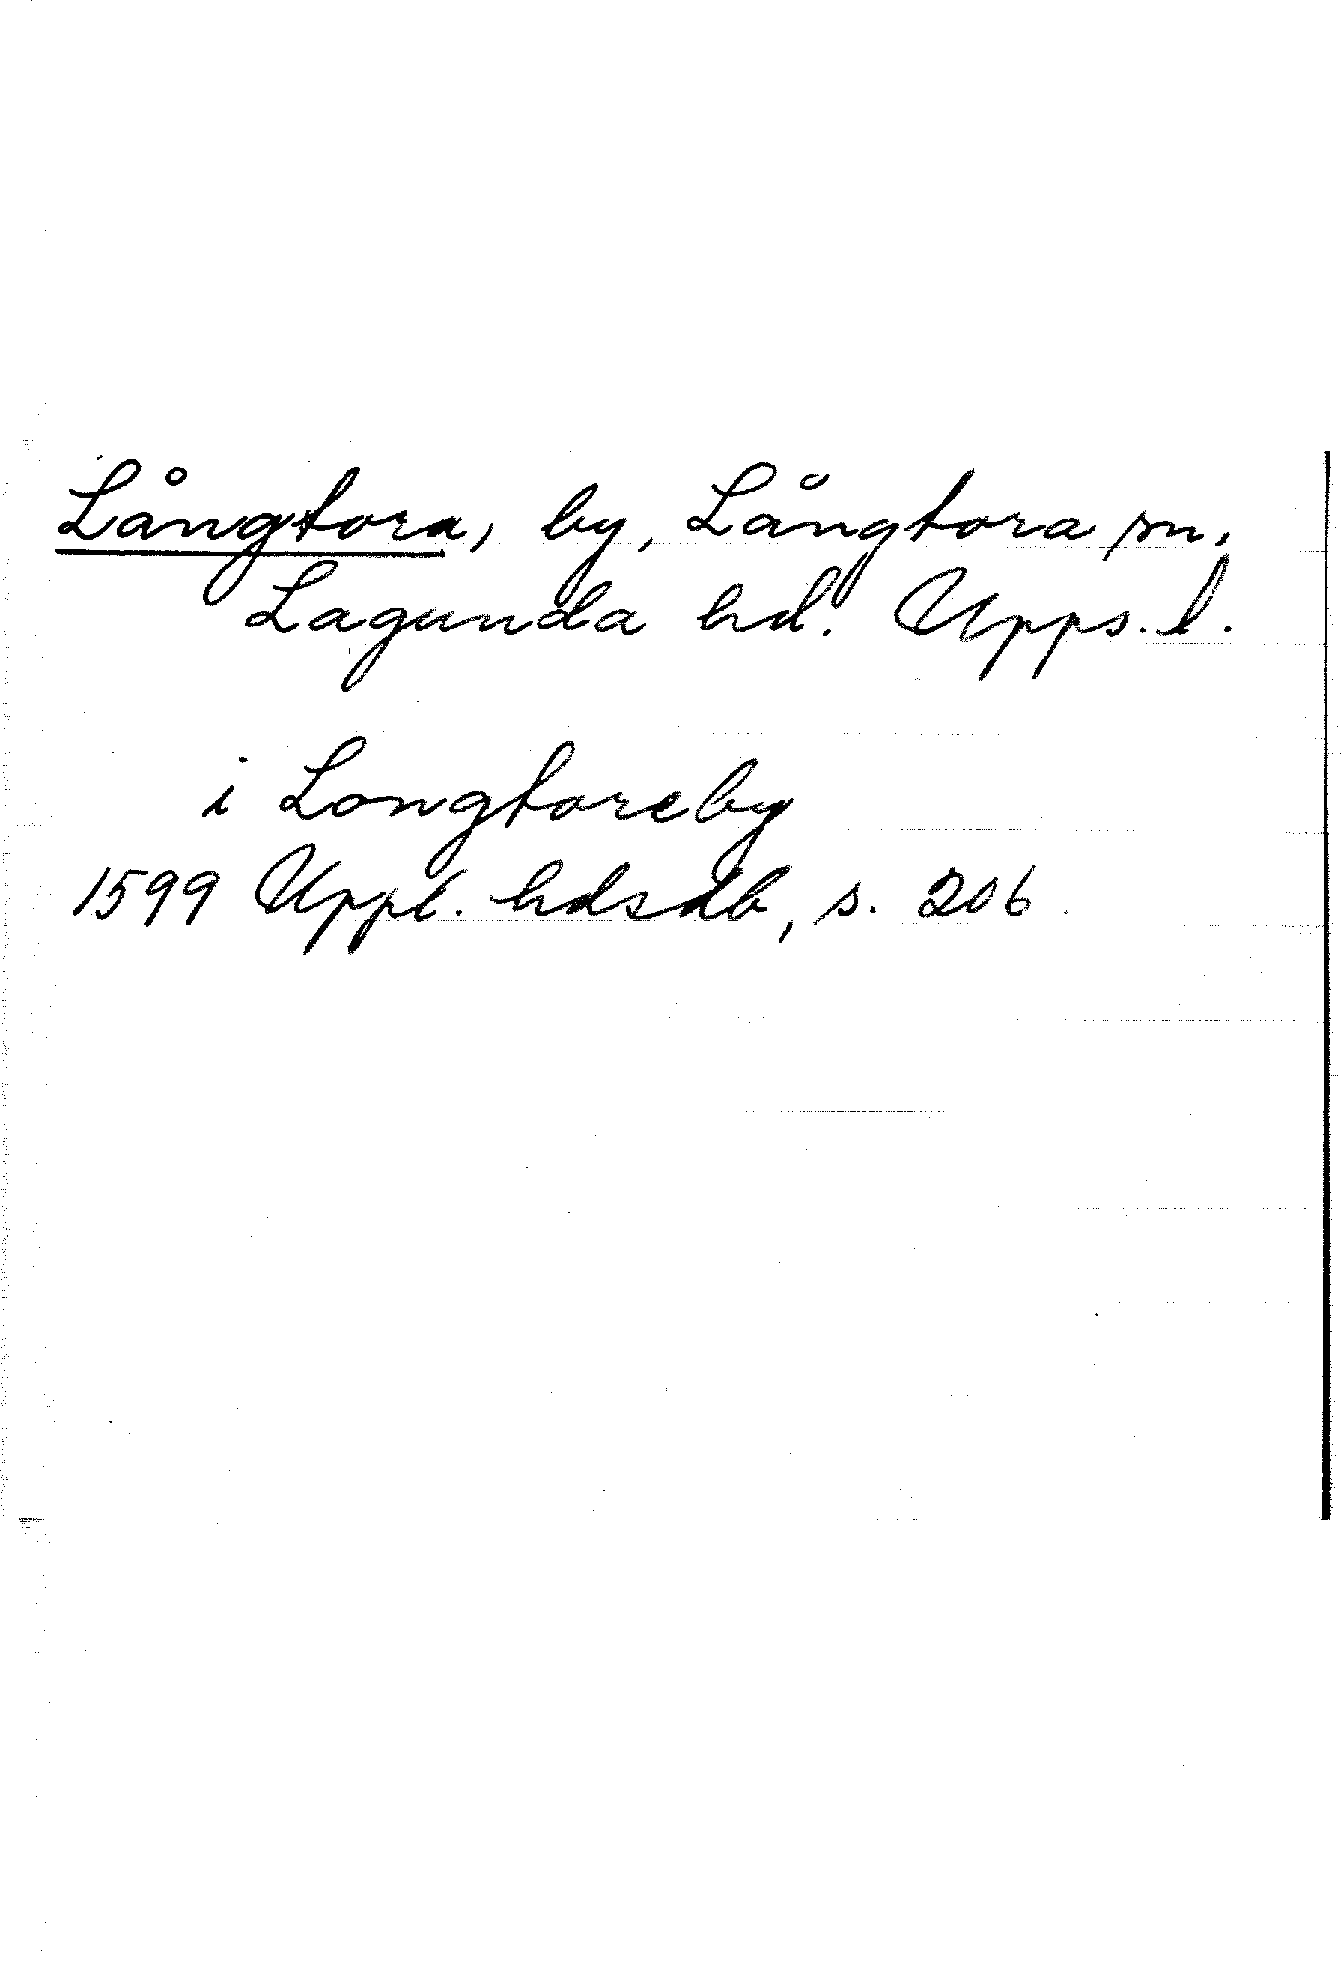 Långtora, by, Långtora sn,
Lagunda hd. Upps. l.
i Longtoreby
1599 Uppl. hdsdb, s. 206